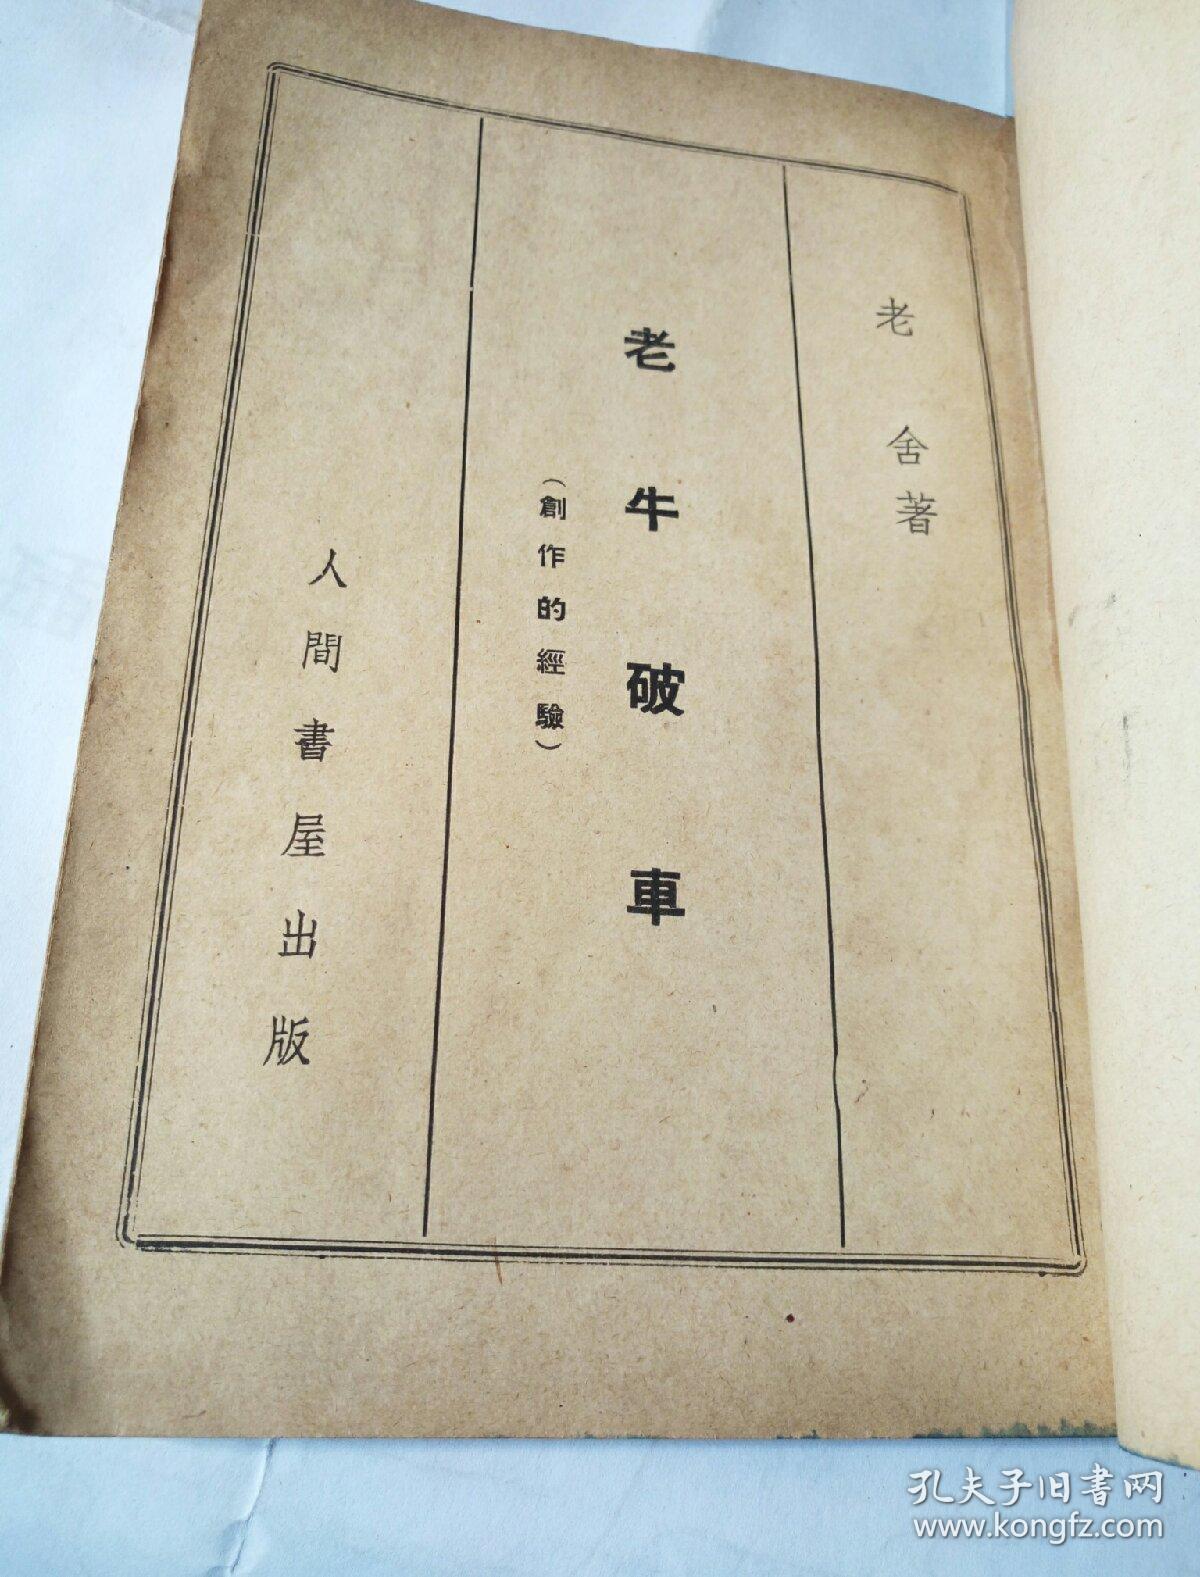 老舍著
老牛破車
（創作的經驗）
人間書屋出版
孔夫子旧書网
www.kongfz.com